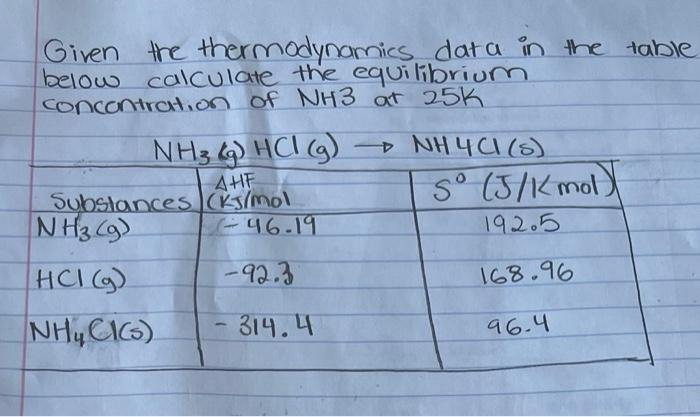 Given the thermodynamics data in the table
below calculate the equilibrium
concentration of NH3 at 25K
NH3 (g) HCl (g) → NH4Cl (s)
Substances ΔHF (KJ/mol S° (J/K mol)
NH3 (g) -46.19 192.5
HCl (g) -92.3 168.96
NH4Cl(s) -314.4 96.4